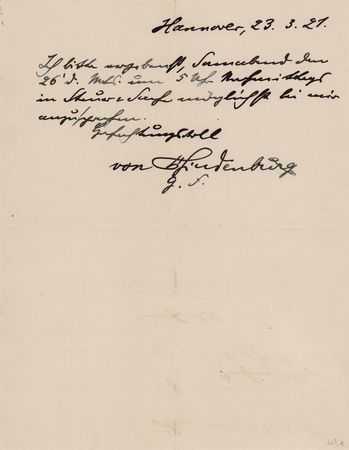 Hannover, 23. 3. 21.
Ich bitte ergebenst, Sonnabend den
26' d. Mts. um 5 Uhr Nachmittags
in Steuer-Sache möglichst bei mir
anzusprechen.
Hochachtungsvoll
von Hindenburg
G. F.